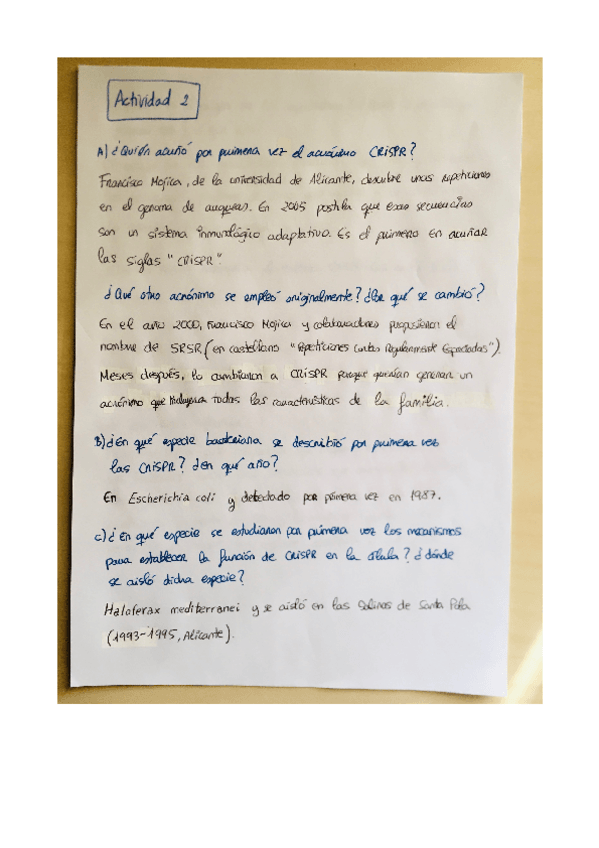 Actividad 2
A) ¿Quién acuñó por primera vez el acrónimo CRISPR?
Francisco Mojica, de la universidad de Alicante, descubre unas repeticiones
en el genoma de arqueas. En 2005 postula que esas secuencias
son un sistema inmunológico adaptativo. Es el primero en acuñar
las siglas "CRISPR".
¿Qué otro acrónimo se empleó originalmente? ¿Por qué se cambió?
En el año 2000, Francisco Mojica y colaboradores propusieron el
nombre de SRSR (en castellano "Repeticiones Cortas Regularmente Espaciadas").
Meses después, lo cambiaron a CRISPR porque querían generar un
acrónimo que incluyera todas las características de la familia.
B) ¿En qué especie bacteriana se describió por primera vez
las CRISPR? ¿en qué año?
En Escherichia coli y detectado por primera vez en 1987.
C) ¿En qué especie se estudiaron por primera vez los mecanismos
para establecer la función de CRISPR en la célula? ¿dónde
se aisló dicha especie?
Haloferax mediterranei y se aisló en las Salinas de Santa Pola
(1993-1995, Alicante).